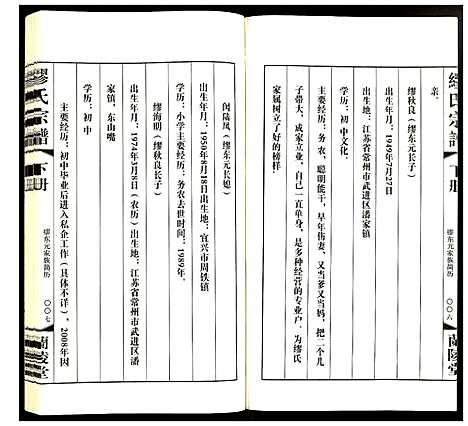 繆氏宗譜
下册
缪东元家族简历
〇〇六
蘭陵堂
亲。
缪秋良（缪东元长子）
出生年月：1949年7月27日
出生地：江苏省常州市武进区潘家镇
学历：初中文化。
主要经历：务农，聪明能干，早年伤妻，又当爹又当妈，把二个儿
子带大，成家立业，自己一直单身，是多种经营的专业户，为缪氏
家属树立了好的榜样。
闵陆凤（缪东元长媳）
出生年月：1950年8月18日出生地：宜兴市周铁镇
学历：小学主要经历：务农去世时间：1989年。
缪海明（缪秋良长子）
出生年月：1974年3月8日（农历）出生地：江苏省常州市武进区潘
家镇，东山嘴
学历：初中
主要经历：初中毕业后进入私企工作（具体不详）。2008年因
繆氏宗譜
下册
缪东元家族简历
〇〇七
蘭陵堂